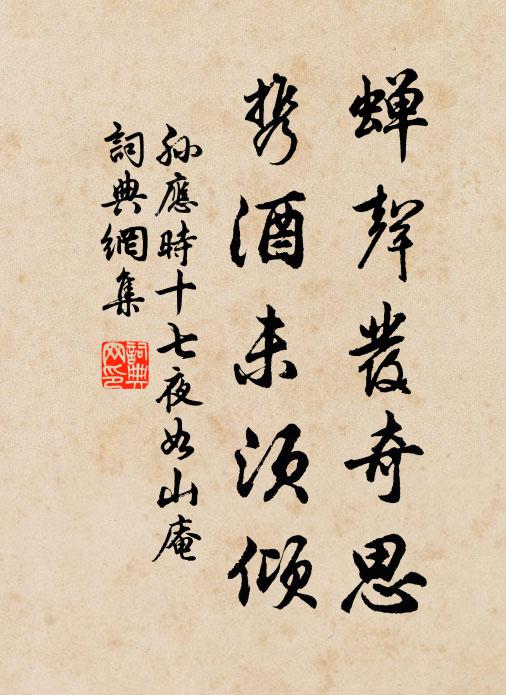 蝉聲發奇思
携酒未須傾
孫應時十七夜如山庵
詞典網集
詞典網印